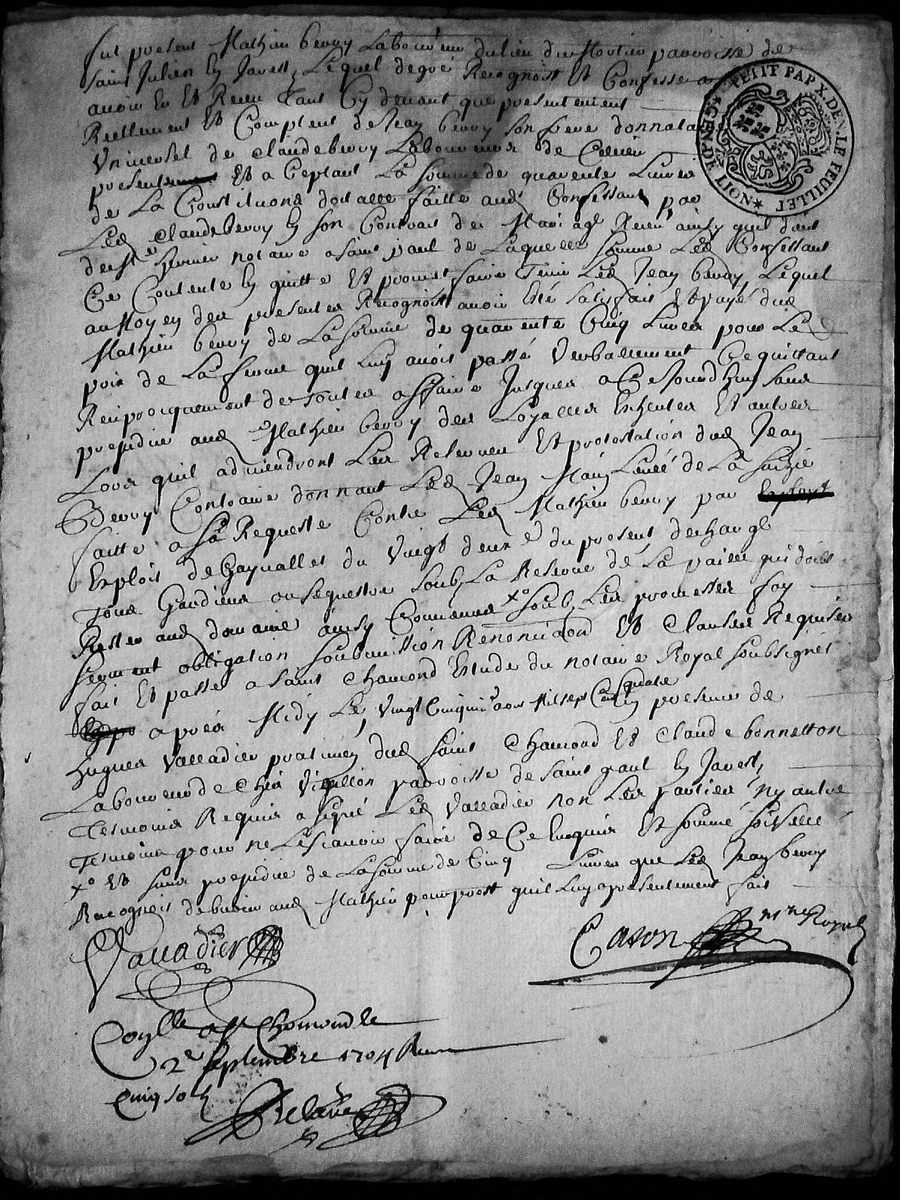 fut present Mathieu bervy Laboureur du lieu du Mortier parroisse de
saint Julien En Jarest, Lequel de gré Recognoist Et Confesse
avoir Eu Et Receu tant Cy devant que presentement
Reellement Et Comptent de Jean bervy son frere donnataire
Universel de Claude bervy Laboureur de
present Et a Ceptant La somme de quarente Livres
de La Constitution dotalle faitte aud Confessant par
Led Claude bervy En son Contrat de Mariage Receu ainsy quil dit
notaire a saint paul de Laquelle somme Led Confessant
Ce Contente En quitte Et promet faire tenir Led Jean bervy, Lequel
au Moyen des presentes Recognoist avoir Eté satisfait Et payé dud
Mathieu bervy de La somme de quarente Cinq Livres pour Le
prix de La ferme quil Luy avoit passé Verballement Ce quittant
Reciprocquement de toutes affaires Jusques a Cejourdhuy sans
prejudice aud Mathieu bervy des Loyalles Et autres
Lors quil adviendront Les Reserves Et protestation dud Jean
Bervy Contraire donnant Led Jean Main Levée de La saizie
faitte a sa Requeste Contre Led Mathieu bervy par
Exploit de du Vingt deux e du present decharge
tous Gardiens ou sequestre soub La Reserve de La paille qui doibt
Rester aud domaine ainsy Convenus xo soub Les promesses foy
serment obligation soubmission Renonciaon Et Clauses Requises
fait Et passé a saint Chamond Estude du notaire Royal soubsigné
apres Midy Le Vingt Cinqui aout Mil sept Cent quatre En presence de
hugues Valladier praticien dud saint Chamond Et Claude bonnetton
Laboureur de Chez Vigillon parroisse de saint paul En Jarest,
tesmoins Requis a signé Led Valladier non Les parties ny autre
tesmoins pour ne Lesçavoir faire de Ce Enquis Et sommé
xo Et sans prejudice de La somme de Cinq Livres que Led Jean bervy
Recognoit debvoir aud Mathieu pour prest quil Luy a presentement fait
Valladier
Cason nre Royal
Coñlle a st Chamond le
2e septembre 1704 Receu
cinq sols
GEN. DE LION PETIT PAP. X. DEN. LE FEUILLET